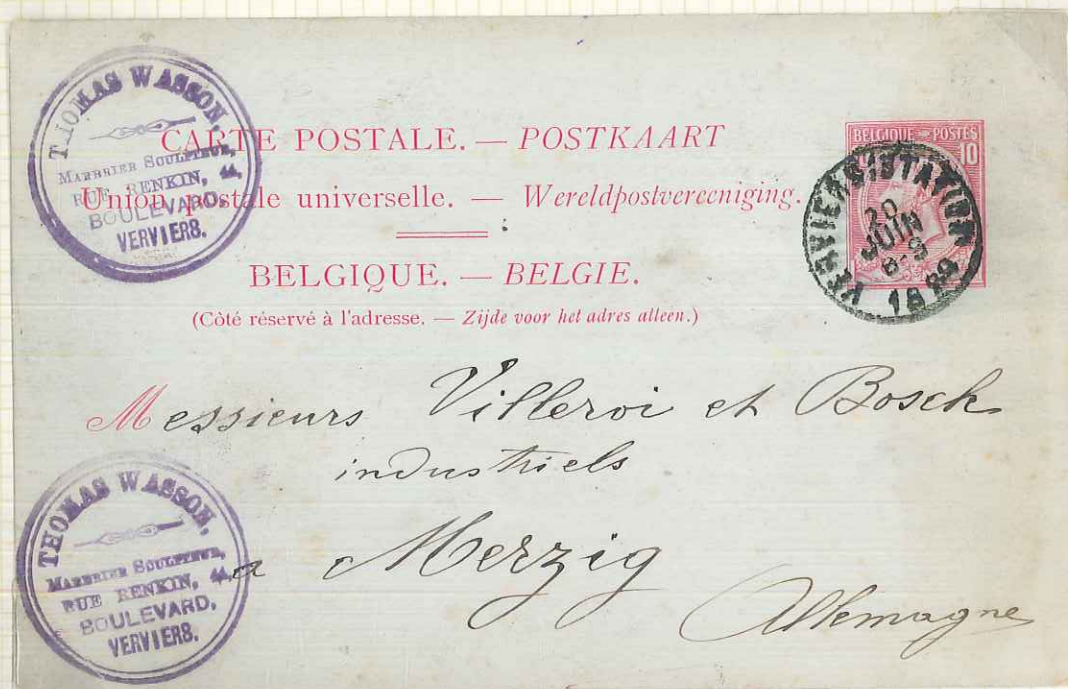 THOMAS WASSON,
MARBRIER SCULPTEUR,
RUE RENKIN, 44,
BOULEVARD,
VERVIERS.
CARTE POSTALE. — POSTKAART
Union postale universelle. — Wereldpostvereeniging.
BELGIQUE. — BELGIE.
(Côté réservé à l'adresse. — Zijde voor het adres alleen.)
BELGIQUE POSTES
10
VERVIERS (STATION)
20
JUIN
8-9
1889
Messieurs Villeroi et Bosch
industriels
a Merzig
Allemagne
THOMAS WASSON,
MARBRIER SCULPTEUR,
RUE RENKIN, 44,
BOULEVARD,
VERVIERS.